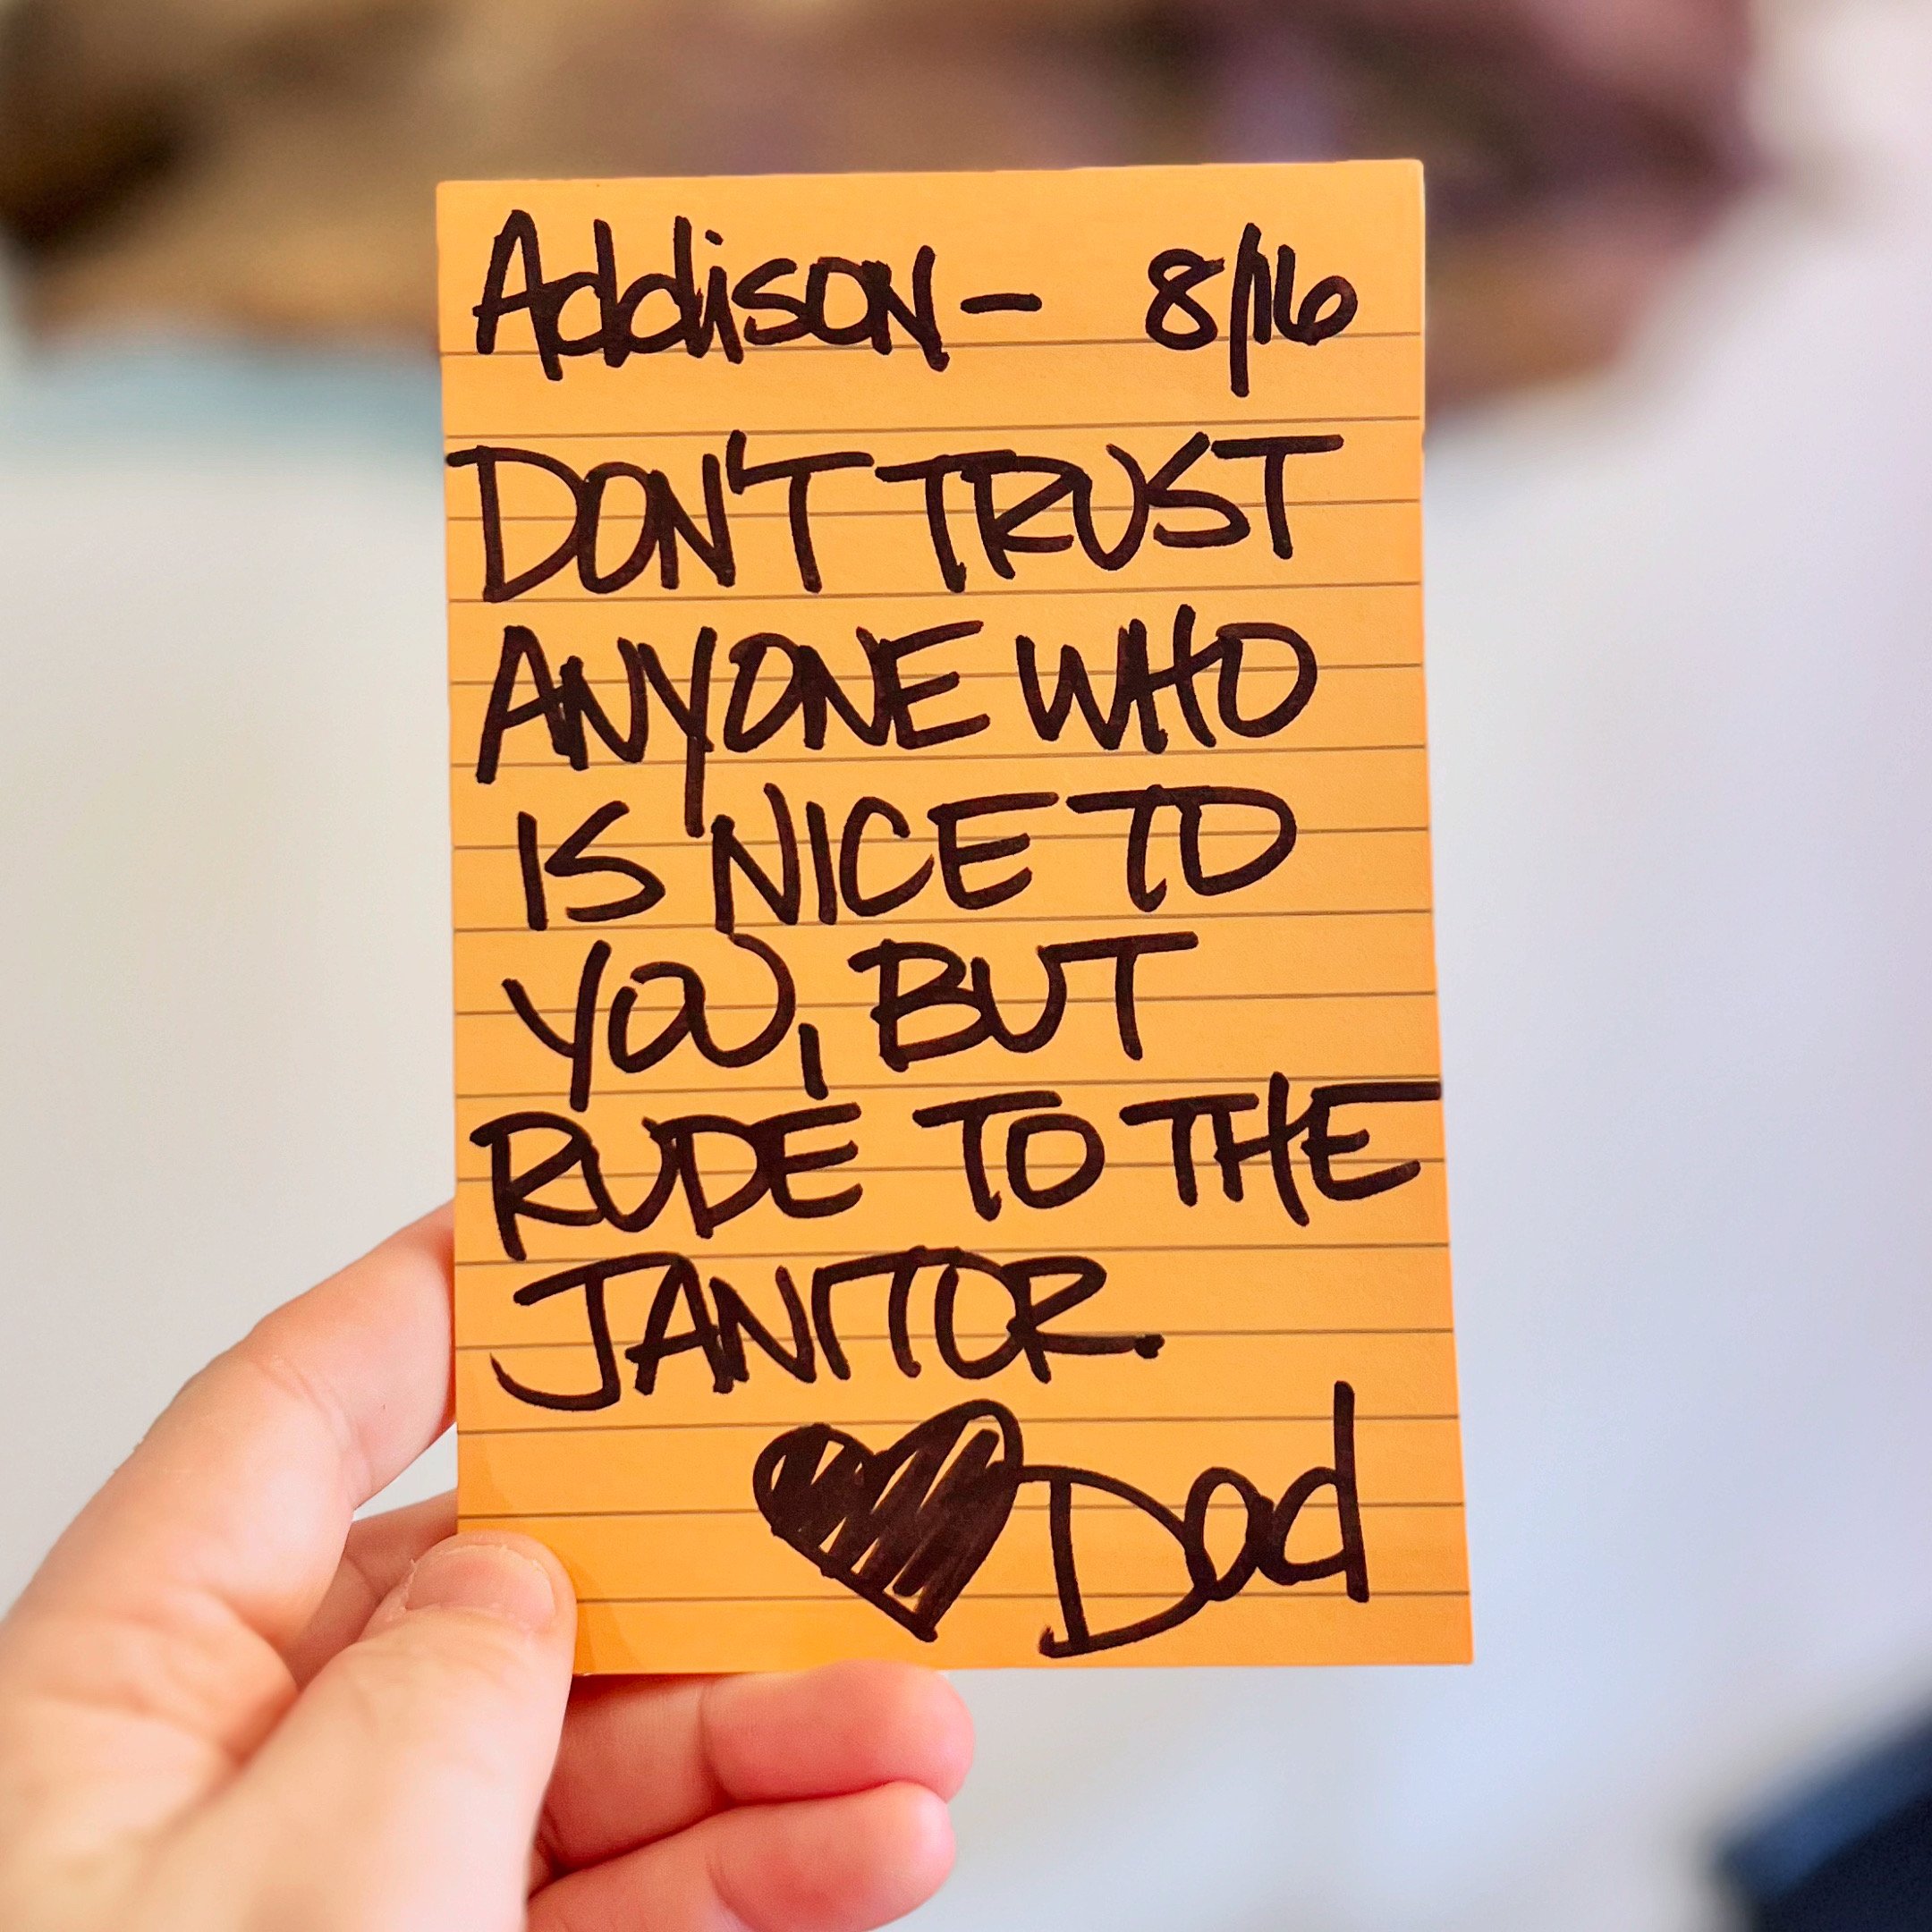 Addison- 8/16
DON'T TRUST
ANYONE WHO
IS NICE TO
YOU, BUT
RUDE TO THE
JANITOR.
Dad